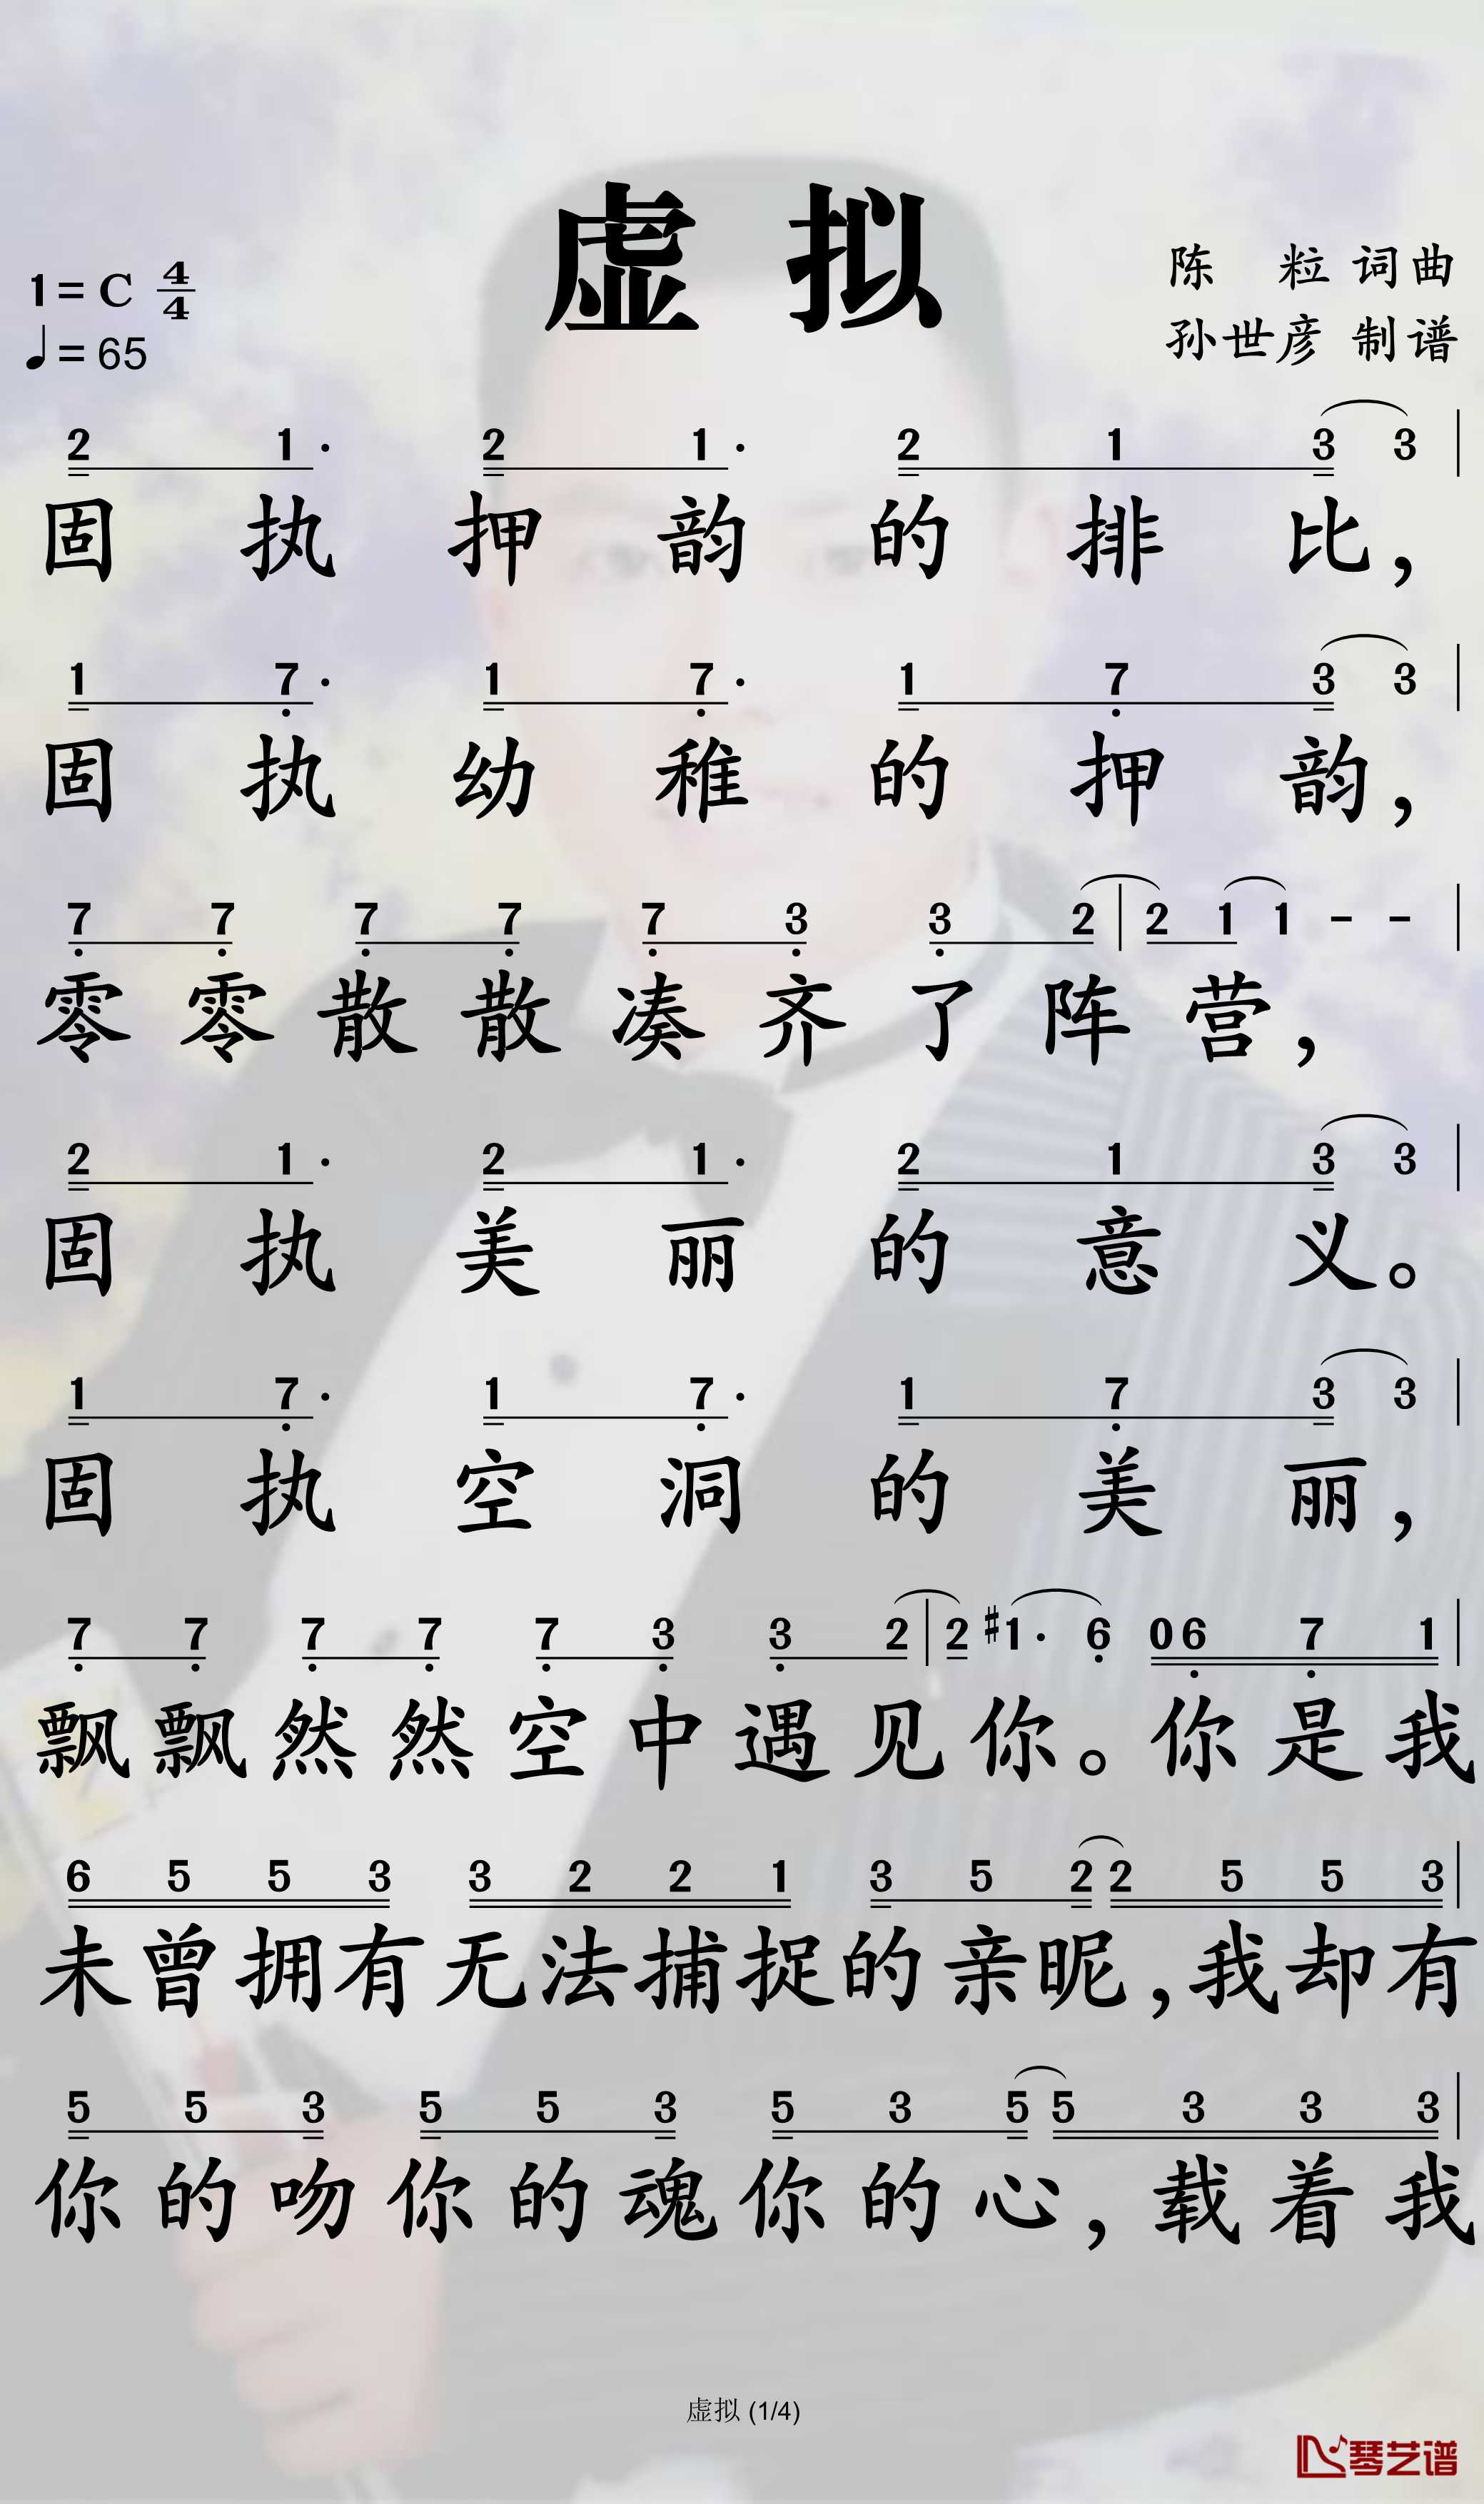 虚 拟
1=C 4/4
♩=65
陈 粒 词曲
孙世彦 制谱
2 1· 2 1· 2 1 3 3
固执押韵的排比，
1 7· 1 7· 1 7 3 3
固执幼稚的押韵，
7 7 7 7 7 3 3 2 | 2 1 1 - -
零零散散凑齐了阵营，
2 1· 2 1· 2 1 3 3
固执美丽的意义。
1 7· 1 7· 1 7 3 3
固执空洞的美丽，
7 7 7 7 7 3 3 2 | 2 #1· 6 0 6 7 1
飘飘然然空中遇见你。你是我
6 5 5 3 3 2 2 1 3 5 2 2 5 5 3
未曾拥有无法捕捉的亲昵，我却有
5 5 3 5 5 3 5 3 5 5 3 3 3
你的吻你的魂你的心，载着我
虚拟 (1/4)
琴艺谱